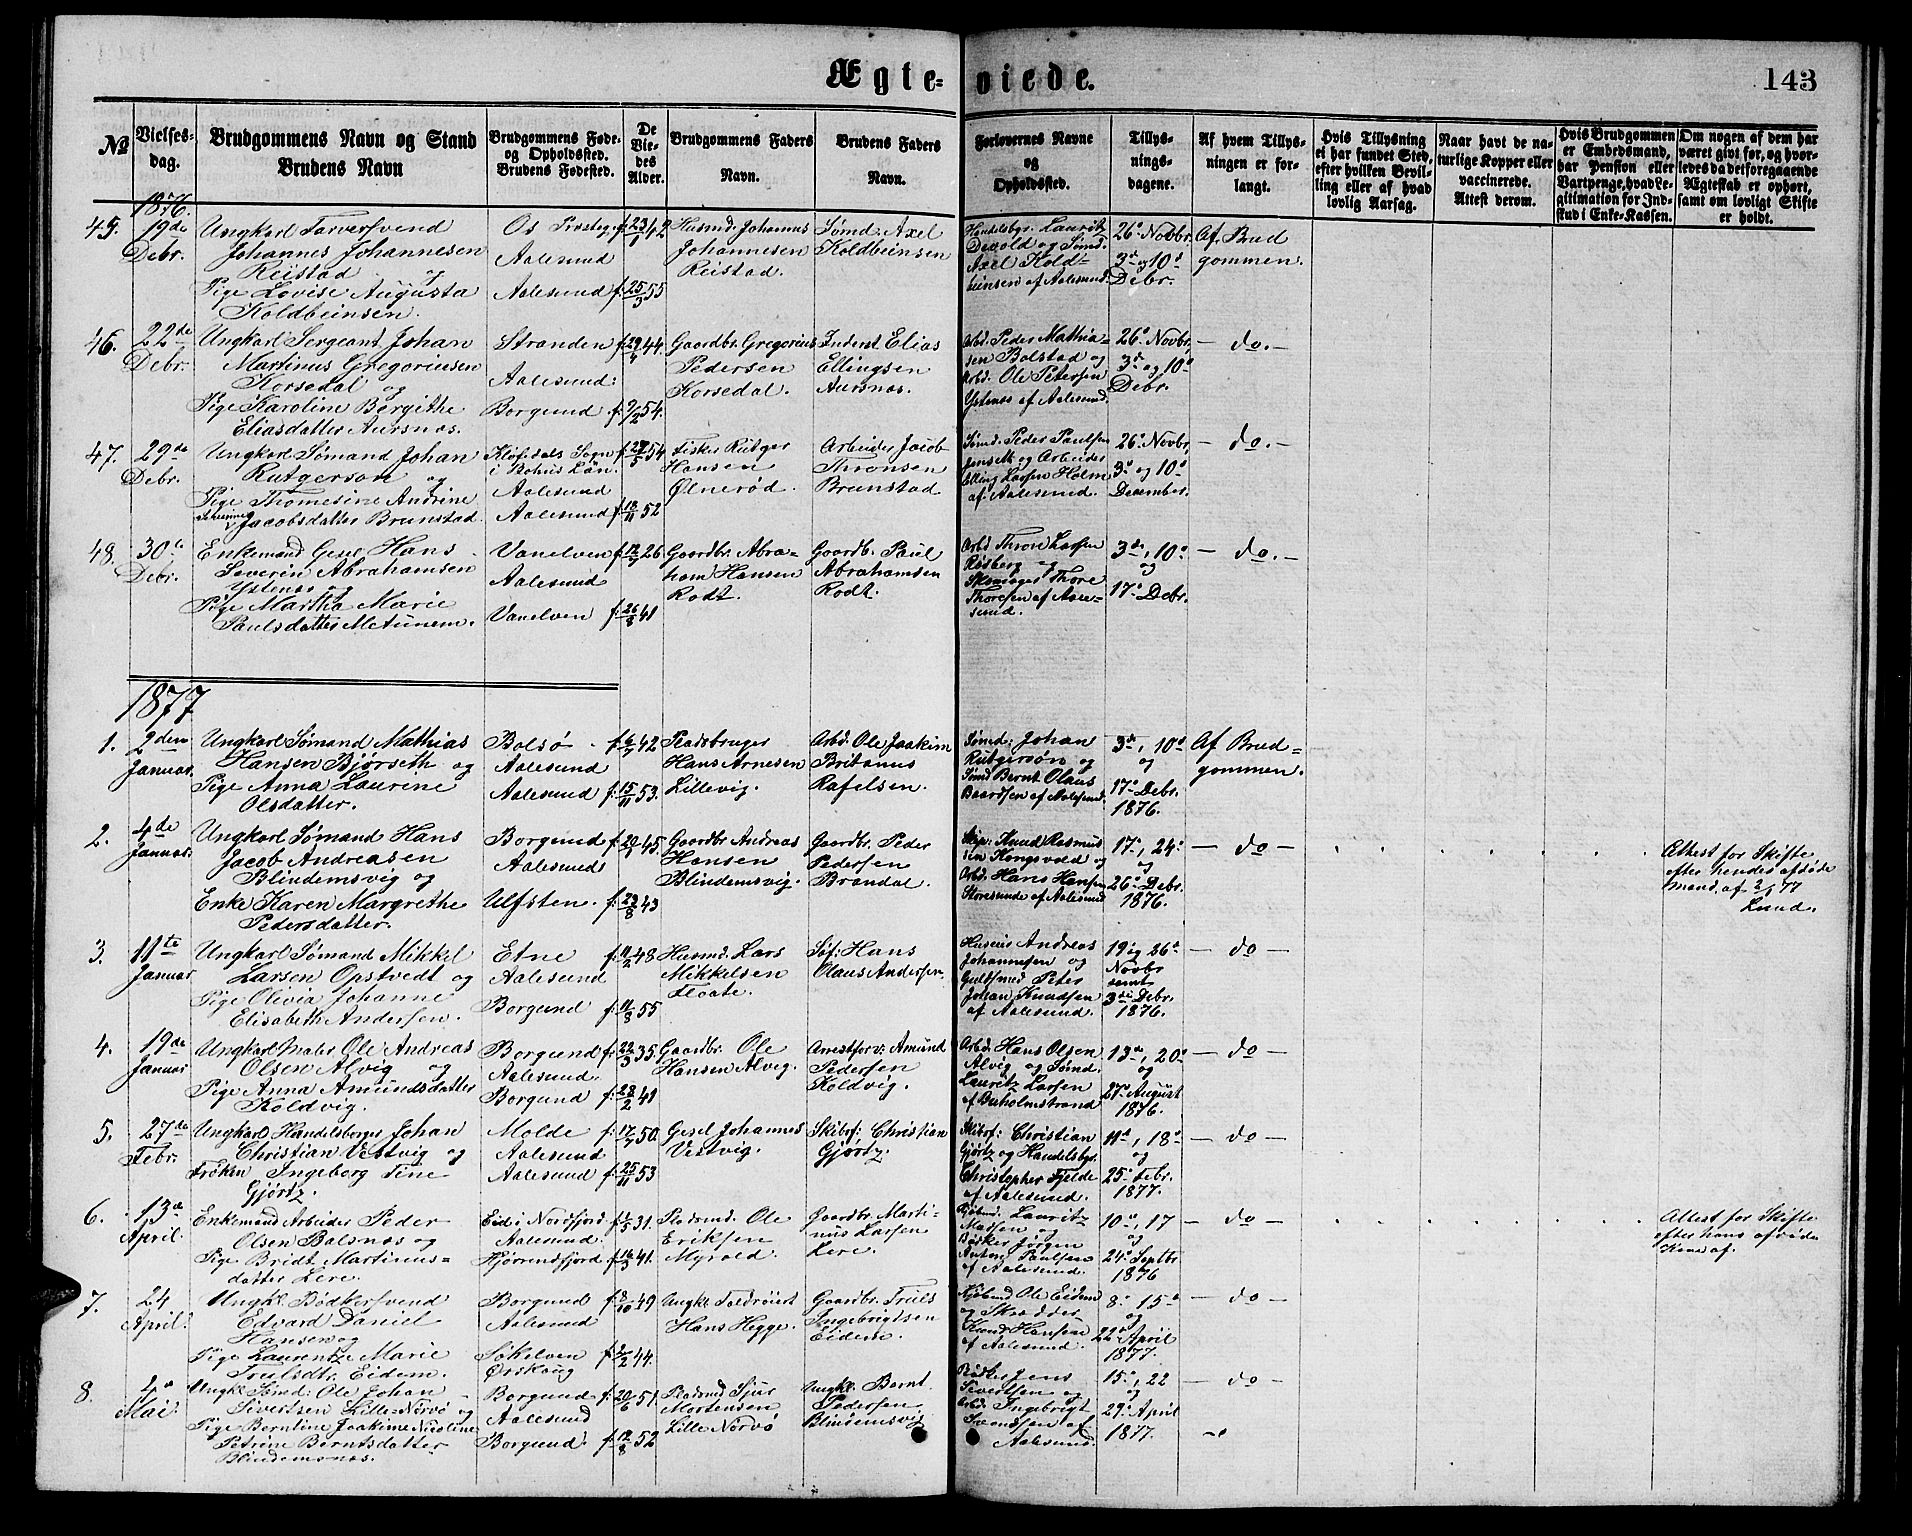 Ægte-viede.
143
No
Vielses-
dag.
Brudgommens Navn og Stand
Brudens Navn
Brudgommens Føde-
og Opholdssted.
Brudens Fødested.
De
Vie-
des
Alder.
Brudgommens Faders
Navn.
Brudens Faders
Navn.
Forlovernes Navne
og
Opholdssted.
Tillys-
nings-
dagene.
Af hvem Tillys-
ningen er for-
langt.
Hvis Tillysning
ei har fundet Sted,
efter hvilken Bevil-
ling eller af hvad
lovlig Aarsag.
Naar havt de na-
turlige Kopper eller
vaccinerede.
Attest derom.
Hvis Brudgommen
er Embedsmand,
har Pension eller
Vartpenge, hvad Le-
gitimation for Ind-
skud i Enke-Kassen.
Om nogen af dem har
været givt før, og hvor-
ledes da det foregaaende
Ægteskab er ophørt,
samt om lovligt Skifte
er holdt.
1876.
45.
19de
Debr.
Ungkarl Farversvend
Johannes Johannesen
Reistad og
Pige Lovise Augusta
Koldbeinsen.
Os Prosteg.
Aalesund
Aalesund
f. 23/1 42
f. 25/3 55
Husmd. Johannes
Johannesen
Reistad.
Sømd. Axel
Koldbeinsen
Handelsbgr. Lauritz
Devold og Sømd.
Axel Kold-
beinsen af Aalesund.
26de Novbr.
3de og 10de
Debr.
Af Brud
gommen.
46.
22de
Debr.
Ungkarl Sergeant Johan
Martinus Gregoriusen
Korsedal og
Pige Karoline Bergithe
Eliasdatter Aursnes.
Stranden
Aalesund.
Borgund
f. 29/4 44.
f. 9/2 54.
Gaardbr. Gregorius
Pedersen
Korsedal.
Inderst Elias
Ellingsen
Aursnes.
Arbd. Peder Mathia-
sen Bolstad og
Arbd. Ole Petersen
Ystenes af Aalesund.
26de Novbr.
3de og 10de
Debr.
— do. —
47.
29de
Debr.
Ungkarl Sømand Johan
Rutgerson og
Pige Thomesine Andrine
Jacobsdatter Brunstad.
Sogn
i Bohus Län.
Aalesund
Aalesund
54
f. 18/11 52
Fisker Rutger
Hansen
Ølnerød.
Arbeider Jacob
Thronsen
Brunstad
Sømd. Peder Paulsen
Jensett og Arbeider
Elling Larsen Holm
af Aalesund.
26de Novbr.
3de og 10de
December.
— do. —
48.
30te
Debr.
Enkemand Gesel Hans
Severin Abrahamsen
Ystenes og
Pige Martha Marie
Paulsdatter
Vanelven
Aalesund
Vanelven
f. 12/7 26.
f. 26/8 41
Gaardbr. Abra-
ham Hansen
Rødt.
Gaardb. Paul
Abrahamsen
Rødt.
Arbd Thron Larsen
Røsberg og
Skomager Thore
Thoresen af Aale-
sund.
3de, 10de
og
17de Debr.
— do. —
1877
1.
2den
Januar.
Ungkarl Sømand Mathias
Hansen Bjørseth og
Pige Anna Laurine
Olsdatter.
Bolsø
Aalesund
Aalesund
f. 6/7 42
f. 15/11 53.
Pladsbruger
Hans Arnesen
Lillevig.
Arbd. Ole Joakim
Britanus
Rafelsen.
Sømd: Johan
Rutgersøn og
Sømd Bernt Olaus
Baardsen af Aalesund.
3de, 10de
og
17de Debr.
1876.
Af Brud=
gommen.
2.
4de
Januar.
Ungkarl Sømand Hans
Jacob Andreasen
Blindemsvig og
Enke Karen Margrethe
Pedersdatter.
Borgund
Aalesund
Ulfsten.
f. 20/7 45.
f. 23/8 43
Gaardbr Andreas
Hansen
Blindemsvig.
Gaardbr. Peder
Pedersen
Brandal.
Skip: Knud Rasmus
sen Kongsvold og
Arbd. Hans Hansen
Storesunde af Aalesund
17de, 24de
og
26de Debr.
1876.
— do —
Attest for Skifte
efter hendes afdøde
Mand, af 2/1 77
Lund.
3.
11te
Januar
Ungkarl Sømand Mikkel
Larsen Opstvedt og
Pige Olivia Johanne
Elisabeth Andersen.
Etne
Aalesund
Borgund
f. 11/2 48
f. 11/8 55
Husmd. Lars
Mikkelsen
Floate.
Søf: Hans
Olaus Andersen.
Andreas
Johannesen og
Guldsmed Peter
Johan Knudsen
af Aalesund.
19de og 26de
Novbr
samt
3die Debr.
1876.
— do —
4.
19de
Januar
Ungkarl Maler Ole Andreas
Olsen Alvig og
Pige Anna Amundsdatter
Koldvig.
Borgund
Aalesund.
Borgund
f. 22/3 35.
f. 28/2 41
Gaardbr. Ole
Hansen Alvig.
Arrestforv: Amund
Pedersen
Koldvig.
Arbd: Hans Olsen
Alvig og Sømd.
Lauritz Larsen
af Buholmstrand
13de, 20de
og
27de August
1876.
— do —
5.
27de
Febr.
Ungkarl Handelsborger Johan
Christian Vestvig og
Frøken Ingeborg Tine
Gjørtz.
Molde
Aalesund
Aalesund
f. 17/7 50.
f. 25/11 53
Gesel Johannes
Vestvig.
Skibsf: Christian
Gjørtz.
Skibsf: Christian
Gjørtz og Handelsbgr.
Christopher Fjelde
af Aalesund.
11te, 18de
25de Febr.
1877.
— do —
6.
13de
April.
Enkemand Arbeider Peder
Olsen Balsnes og
Pige Bridt Martinus=
datter Lere.
Eid i Nordfjord
Aalesund.
Hjørrendfjord
f. 1/5 31.
f. 16/3 41.
Pladsmd. Ole
Eriksen
Myrold.
Gaardbr. Marti-
nus Larsen
Lere.
Lauritz
Madsen og
Bødker Jørgen
Anton Paulsen
af Aalesund.
10de, 17
og
24de Septbr
1876
— do —
Attest for Skifte
efter hans afdøde
Kone af.
7.
24
April.
Ungkl. Bødkersvend
Edvard Daniel
Hansen og
Pige Laurentze Marie
Trulsdtr. Eidem.
Borgund
Aalesund
Søkelven
Ørskoug
f. 8/10 49
f. 2/2 44.
Ungkl.
Hans Hegge.
Gaardbr. Truls
Ingebrigtsen
Eidem.
Ole Eidem
og Skrædder
Knud Hansen
af Aalesund.
8de 15de
og
22de April
1877.
— do —
8.
4de
Mai.
Ungkl. Sømd: Ole Johan
Sivertsen Lille-Nørvø og
Pige Berntine Joakime Nicoline
Petrine Berntsdatter
Blindemsnes.
Borgund
Aalesund
Borgund
f. 20/6 51.
f. 12/8 52
Pladsmd Sjur
Mortensen
Lille Nørvø
Ungkl. Bernt
Pedersen
Blindemsvig
Bødker Jens
Sivertsen og
Arbd: Ingebrigt
af
Aalesund.
15de, 22
og
29de April
1877.
— do —